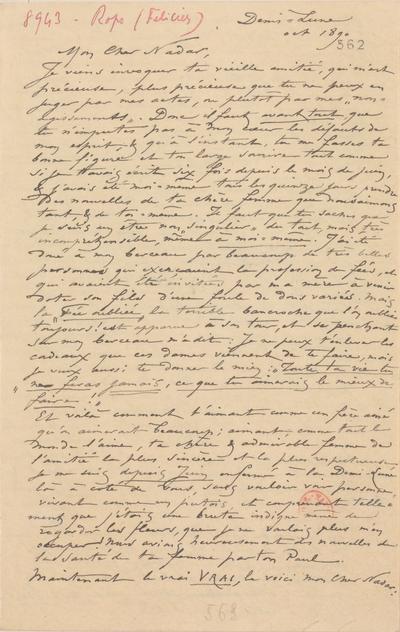 8943 - Rops (Félicien)
Demi-Lune
oct 1890
562
Mon Cher Nadar,
Je viens invoquer ta vieille amitié, qui m'est
précieuse, plus précieuse que tu ne peux en
juger par mes actes, ou plutôt par mes "non-
agissements". Donc il faut avant tout que
tu n'imputes pas à mon cœur les défauts de
mon esprit, & qu'à l'instant, tu me fasses ta
bonne figure et ton large sourire tout comme
si je t'avais écrit six fois depuis le mois de juin,
& j'avais été moi-même tous les quinze jours prendre
des nouvelles de ta chère femme que nous aimons
tant, & de toi-même. Il faut que tu saches que
je suis un être non "singulier" du tout, mais très
incompréhensible, même à moi-même. J'ai été
doué à mon berceau par beaucoup de très belles
personnes qui exerçaient la profession de fées, et
qui avaient été invitées par ma mère à venir
doter son fils d'une foule de dons variés. Mais
la "Fée oubliée", la terrible bancroche que l'on oublie
toujours, est apparue à son tour, et se penchant
sur mon berceau m'a dit: Je ne peux t'enlever les
cadeaux que ces dames viennent de te faire, mais
je veux aussi te donner le mien: "Toute ta vie tu
"ne feras jamais, ce que tu aimerais le mieux de
faire"!
Et voilà comment t'aimant comme un frère aîné
qu'on aimerait beaucoup; aimant comme tout le
monde l'aime, ta chère & admirable femme de
l'amitié la plus sincère et la plus respectueuse,
je me suis depuis Juin enfermé à la Demi-Lune
là à côté de vous sans vouloir voir personne,
vivant comme un et comprenant telle-
ment que j'étais une brute indigne même de
regarder les fleurs, que je ne voulais plus m'en
occuper. Nous avions heureusement des nouvelles de
la santé de ta femme par ton Paul.
Maintenant le vrai VRAI, le voici mon Cher Nadar:
568